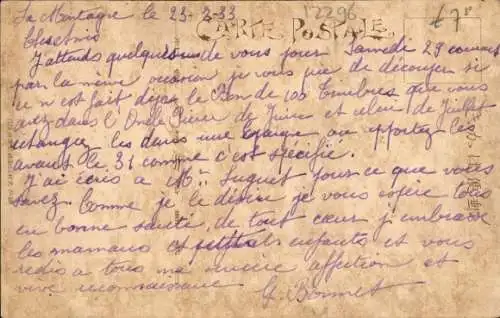 La Montagne le 23-7-33
12296
CARTE POSTALE
47
J'attends quelques de vous pour Samedi 29 courant
par la même occasion je vous prie de découper si
ce n'est fait déjà le Bon de 100 timbres que vous
avez dans l'Oncle Pierre de Juin et celui de Juillet
échangez les dans une épargne ou apportez les
avant le 31 comme c'est spécifié.
J'ai écris a Mr Suquet pour ce que vous
savez. Comme je le désire je vous espère tous
en bonne santé, de tout cœur j'embrasse
les mamans et petits enfants et vous
redis a tous ma sincère affection et
vive reconnaissance
G. Bonnet